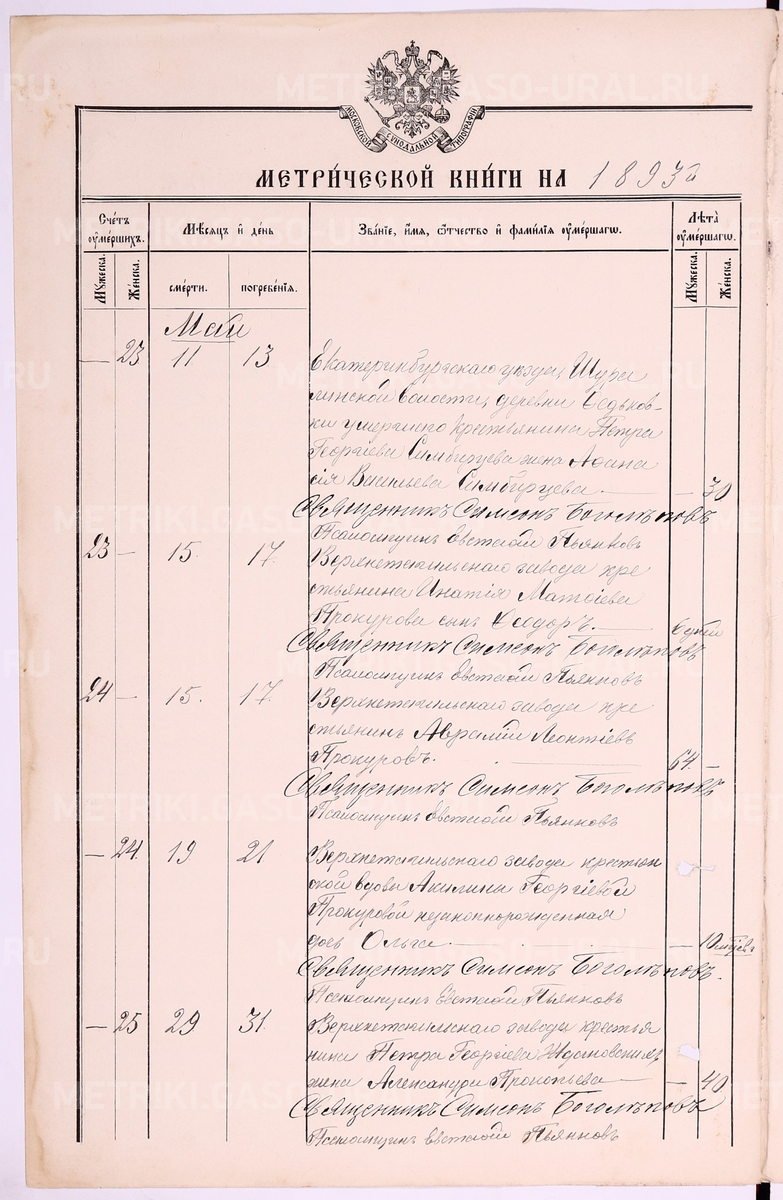 МОСКОВСКОЙ СѴНОДАЛЬНОЙ ТИПОГРАФІИ
МЕТРИ́ЧЕСКОЙ КНИ́ГИ НА 1893 г.
Сче́тъ ᲂу҆ме́ршихъ.
Мѣ́сяцъ и҆ де́нь
Зва́нїе, и҆́мя, ѻ҆́тчество и҆ фами́лїя ᲂу҆ме́ршагѡ.
Лѣ́та ᲂу҆ме́ршагѡ.
Мꙋ́жеска. Же́нска.
сме́рти. погребе́нїя.
Мꙋ́жеска. Же́нска.
Май
— 23 11 13 Екатеринбургскаго уѣзда, Шура
линской волости, деревни Ѳедьков-
ки умершаго крестьянина Петра
Георгіева Симбирцева жена Аѳана
сія Васильева Симбирцева. — — 30
Священникъ Симеонъ Боголѣповъ
Псаломщикъ Евстафій Пьянковъ
23 — 15. 17. Верхнетагильскаго завода кре
стьянина Игнатія Матѳіева
Прокурова сынъ Ѳеодоръ. — 6 дней
Священникъ Симеонъ Боголѣповъ
Псаломщикъ Евстафій Пьянковъ
24 — 15. 17. Верхнетагильскаго завода кре
стьянинъ Аврамій Леонтіевъ
Прокуровъ. 64. —
Священникъ Симеонъ Боголѣповъ
Псаломщикъ Евстафій Пьянковъ
— 24. 19 21 Верхнетагильскаго завода крестьян
ской вдовы Акилины Георгіевой
Прокуровой незаконнорожденная
дочь Ольга. — — 10 месяцевъ
Священникъ Симеонъ Боголѣповъ.
Псаломщикъ Евстафій Пьянковъ
— 25 29 31. Верхнетагильскаго завода крестья
нина Петра Георгіева
жена Александра Прокопьева — — 40
Священникъ Симеонъ Боголѣповъ
Псаломщикъ Евстафій Пьянковъ
METRIKI.GASO-URAL.RU